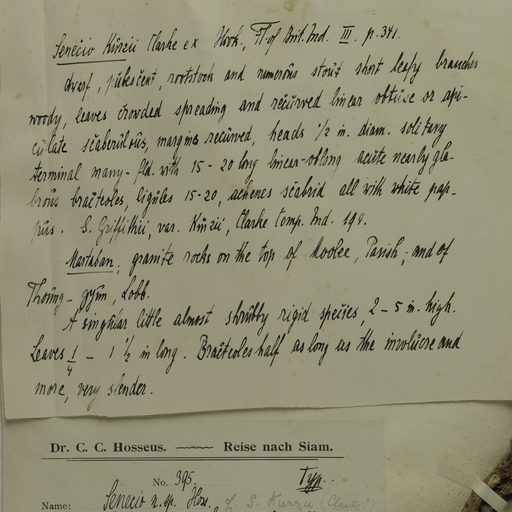 Senecio Kurzii Clarke ex Hook., Fl of Brit. Ind. III p. 341.
dwarf, pubescent, rootstock and numerous stout short leafy branches
woody, leaves crowded spreading and recurved linear obtuse or api-
culate scaberulous, margins recurved, heads 1/2 in. diam. solitary
terminal many-fld. with 15-20 long linear-oblong acute nearly gla-
brous bracteoles, ligules 15-20, achenes scabrid all with white pap-
pus. S. Griffithii, var. Kurzii, Clarke Comp. Ind. 194.
Martaban, granite rocks on the top of Moolee, Parish; and of
Thoung-gyun, Lobb.
A singular little almost shrubby rigid species, 2-5 in. high.
Leaves 1/4 - 1 1/2 in long. Bracteoles half as long as the involucre and
more, very slender.
Dr. C. C. Hosseus. Reise nach Siam.
No. 395. Typ.
Name: Senecio n. sp. Hoss. S. Kurzii (Clarke